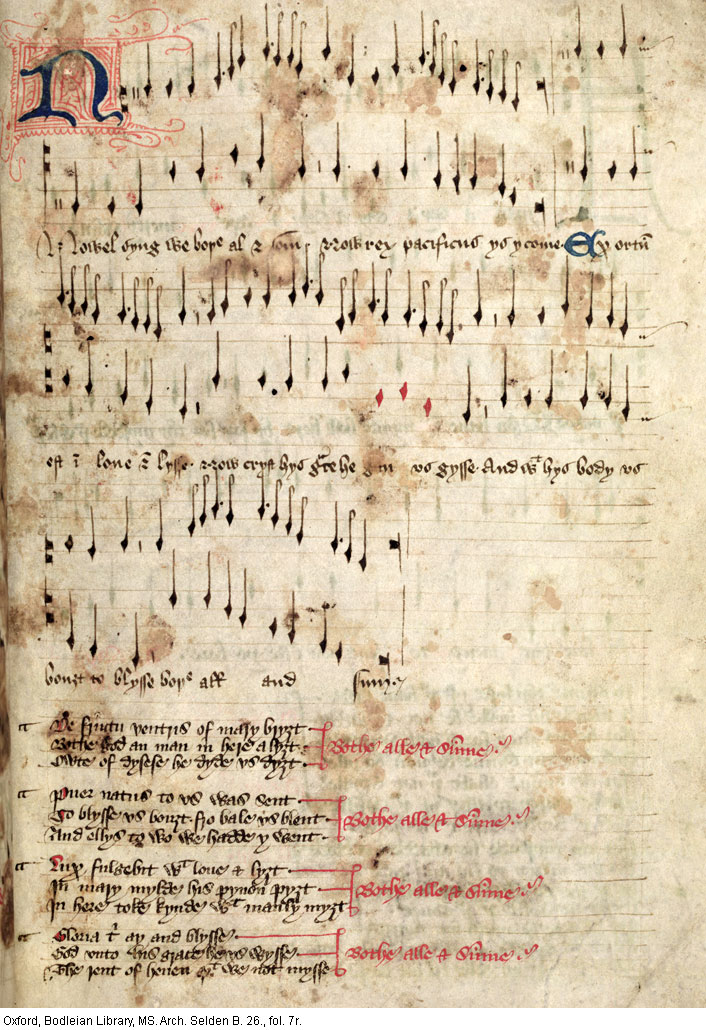 Nowel syng we boþe al & som now rex pacificus ys y come Ex ortū
est ī loue & lysse now cryst hys g̃ce he gan vs gysse And wᵗ hys body vs
bouȝt to blysse boþe all and sume
De fructu ventris of mary bryȝt
Bothe god an man in here alyȝt
Owte of dysese he dyde vs dyȝt
Bothe alle & Sūme
Puer natus to vs was sent
To blysse vs bouȝt fro bale vs blent
And ellys to wo we hadde y went
Bothe alle & Sūme
Lux fulgebit wᵗ loue & lyȝt
In mary mylde his pynon pyȝt
In here toke kynde wᵗ manly myȝt
Bothe alle & Sūme
Gloria t̄ ay and blysse
God vnto his grace he vs wysse
The rent of heuen þᵗ we not mysse
Bothe alle & Sūme
Oxford, Bodleian Library, MS. Arch. Selden B. 26., fol. 7r.